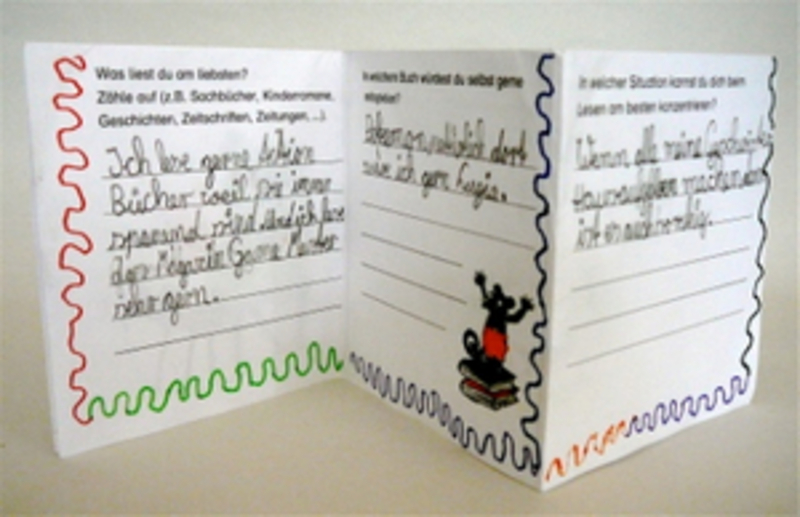 Was liest du am liebsten?
Zähle auf (z.B. Sachbücher, Kinderromane,
Geschichten, Zeitschriften, Zeitungen, ...).
Ich lese gerne Aktion
Bücher weil sie immer
spannend sind. Und ich lese
das Magazin Game Master
sehr gern.
In welchem Buch würdest du selbst gerne
mitspielen?
Pokemon natürlich dort
wäre ich gern Lugia.
In welcher Situation kannst du dich beim
Lesen am besten konzentrieren?
Wenn alle meine
Hausaufgaben machen dann
ist es auch ruhig.